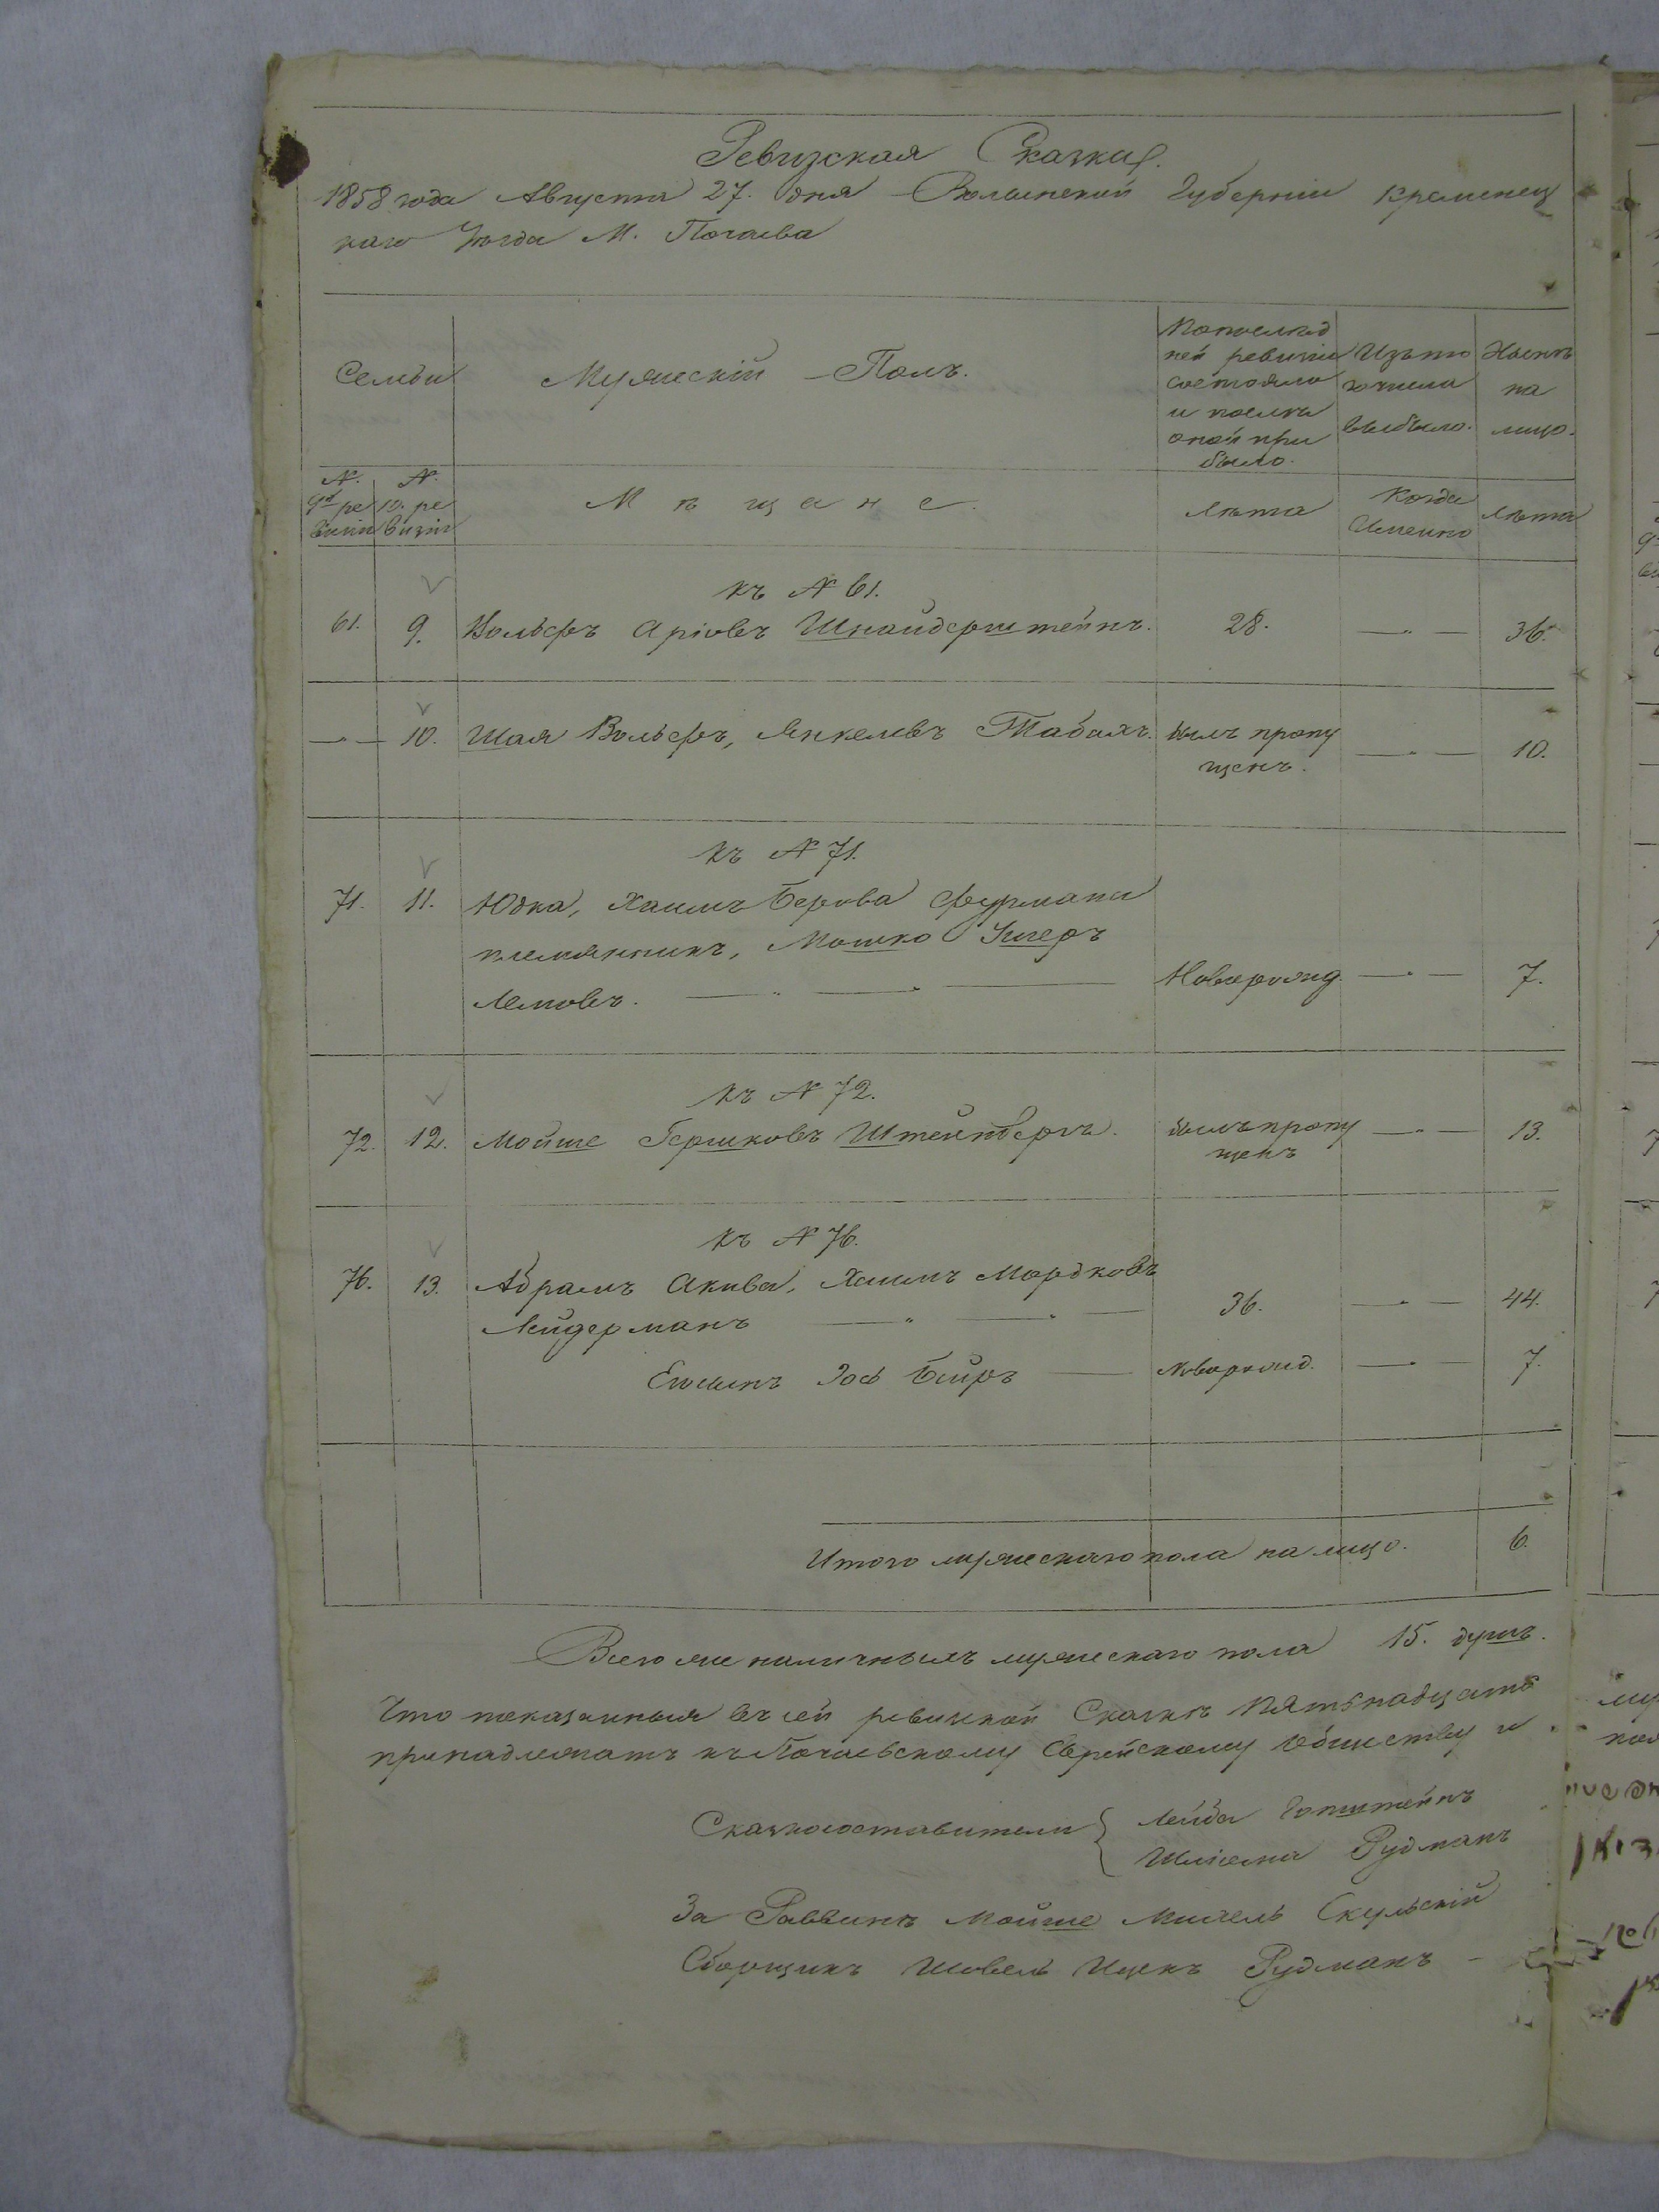 Ревизская Сказка.
1858 года Августа 27. дня Волынской Губерніи Кременец
каго Уѣзда М. Почаева
Семьи
Мужескій Полъ.
По послѣд
ней ревизіи
состояло
и послѣ
оной при
было.
Изъ то
го числа
выбыло.
Нынѣ
на
лицо.
№.
9й ре
визіи
№.
10. ре
визіи
Мѣщане.
Лѣта
Когда
Именно
Лѣта
къ № 61.
61. 9. Вольфъ Аріовъ Шнайдерштейнъ. 28. —„— 36.
—„— 10. Шая Вольфъ, Янкелевъ Табакъ. былъ пропу —„— 10.
щенъ.
къ № 71.
71. 11. Юдка, Хаимъ Берова Фурмана
племянникъ, Мошко Ушеръ
Лемовъ. —„— —„— Новорожд. —„— 7.
къ № 72.
72. 12. Мойше Гершковъ Штейнберъ. былъ пропу —„— 13.
щенъ
къ № 76.
76. 13. Абрамъ Акива, Хаимъ Мордковъ
Лейдерманъ —„— —„— 36. —„— 44.
Его сынъ Іос Бейръ — Новорожд. —„— 7.
Итого мужескаго пола на лицо. 6.
Всего же наличныхъ мужескаго пола 15. душъ.
Что показанныя въ сей ревизской Сказкѣ пятьнадцать
принадлежатъ къ Почаевскому Еврейскому Обществу и
Сказкосоставители { Лейба Готштейнъ
Шлiома Рудманъ
За Раввинъ Мойше Михель Скульскій
Сборщикъ Шовель Ицекъ Рудманъ